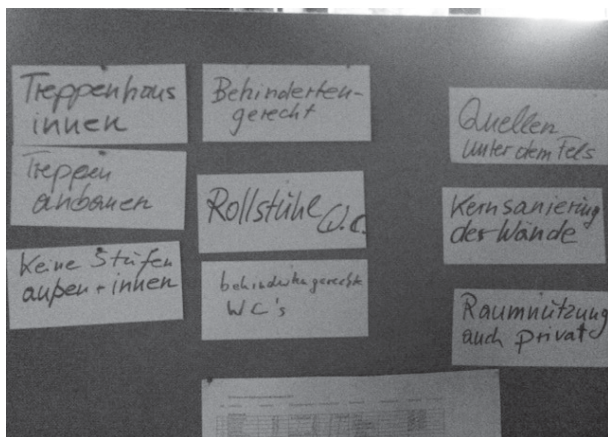 Treppenhaus
innen
Treppen
anbauen
Keine Stufen
außen + innen
Behinderten-
gerecht
Rollstühle W.C.
behindertengerechte
WC's
Quellen
unter dem Fels
Kernsanierung
der Wände
Raumnutzung
auch privat